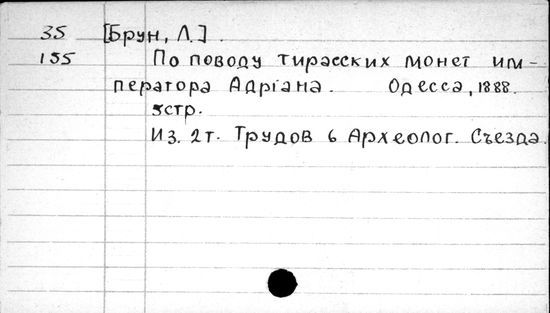 35 [Брун, Л.].
155 По поводу тирасских монет им-
ператора Адріана. Одесса, 1888.
5стр.
Из. 2т. Трудов 6 Археолог. Съезда.